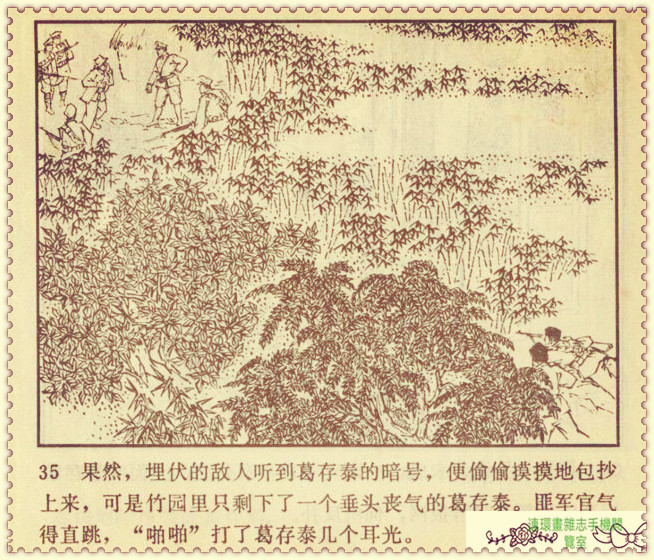 35 果然，埋伏的敌人听到葛存泰的暗号，便偷偷摸摸地包抄
上来，可是竹园里只剩下了一个垂头丧气的葛存泰。匪军官气
得直跳，“啪啪”打了葛存泰几个耳光。
連環畫雜志手機閱
覽室